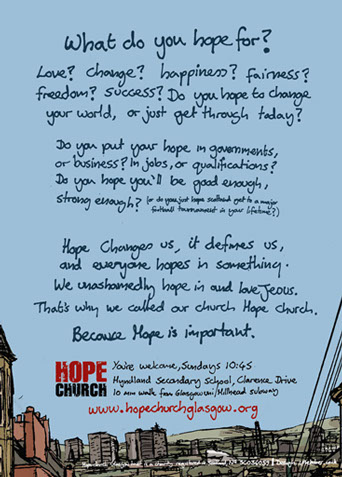 What do you hope for?
Love? Change? happiness? fairness?
freedom? success? Do you hope to change
your world, or just get through today?
Do you put your hope in governments,
or business? In jobs, or qualifications?
Do you hope you'll be good enough,
strong enough? (or do you just hope scotland get to a major
football tournament in your lifetime?)
Hope Changes us, it defines us,
and everyone hopes in something.
We unashamedly hope in and love Jesus.
That's why we called our church Hope Church.
Because Hope is important.
HOPE
CHURCH
You're welcome, Sundays 10:45
Hyndland Secondary School, Clarence Drive
10 min walk from Glasgow uni/Hillhead subway
www.hopechurchglasgow.org